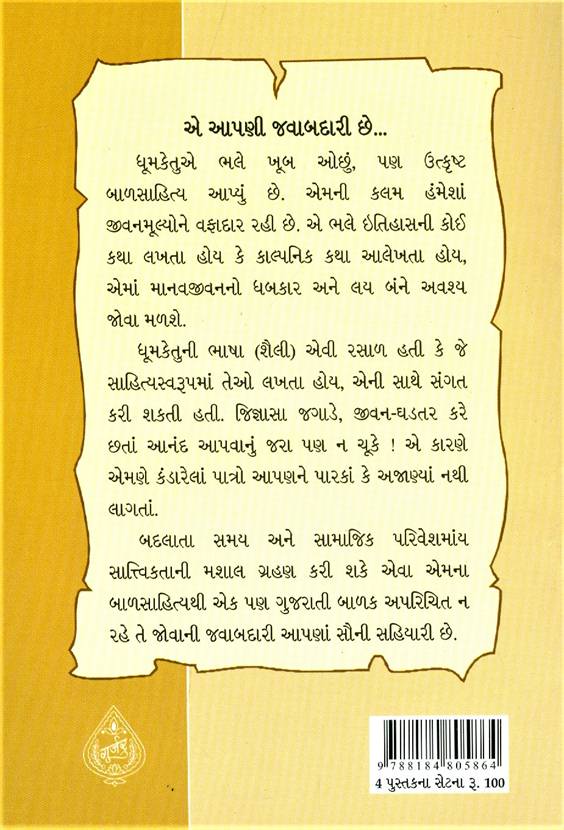 એ આપણી જવાબદારી છે...
ધૂમકેતુએ ભલે ખૂબ ઓછું, પણ ઉત્કૃષ્ટ
બાળસાહિત્ય આપ્યું છે. એમની કલમ હંમેશાં
જીવનમૂલ્યોને વફાદાર રહી છે. એ ભલે ઇતિહાસની કોઈ
કથા લખતા હોય કે કાલ્પનિક કથા આલેખતા હોય,
એમાં માનવજીવનનો ધબકાર અને લય બંને અવશ્ય
જોવા મળશે.
ધૂમકેતુની ભાષા (શૈલી) એવી રસાળ હતી કે જે
સાહિત્યસ્વરૂપમાં તેઓ લખતા હોય, એની સાથે સંગત
કરી શકતી હતી. જિજ્ઞાસા જગાડે, જીવન-ઘડતર કરે
છતાં આનંદ આપવાનું જરા પણ ન ચૂકે ! એ કારણે
એમણે કંડારેલાં પાત્રો આપણને પારકાં કે અજાણ્યાં નથી
લાગતાં.
બદલાતા સમય અને સામાજિક પરિવેશમાંય
સાત્ત્વિકતાની મશાલ ગ્રહણ કરી શકે એવા એમના
બાળસાહિત્યથી એક પણ ગુજરાતી બાળક અપરિચિત ન
રહે તે જોવાની જવાબદારી આપણાં સૌની સહિયારી છે.
ગૂર્જર
9 788184 805864
4 પુસ્તકના સેટના રૂ. 100